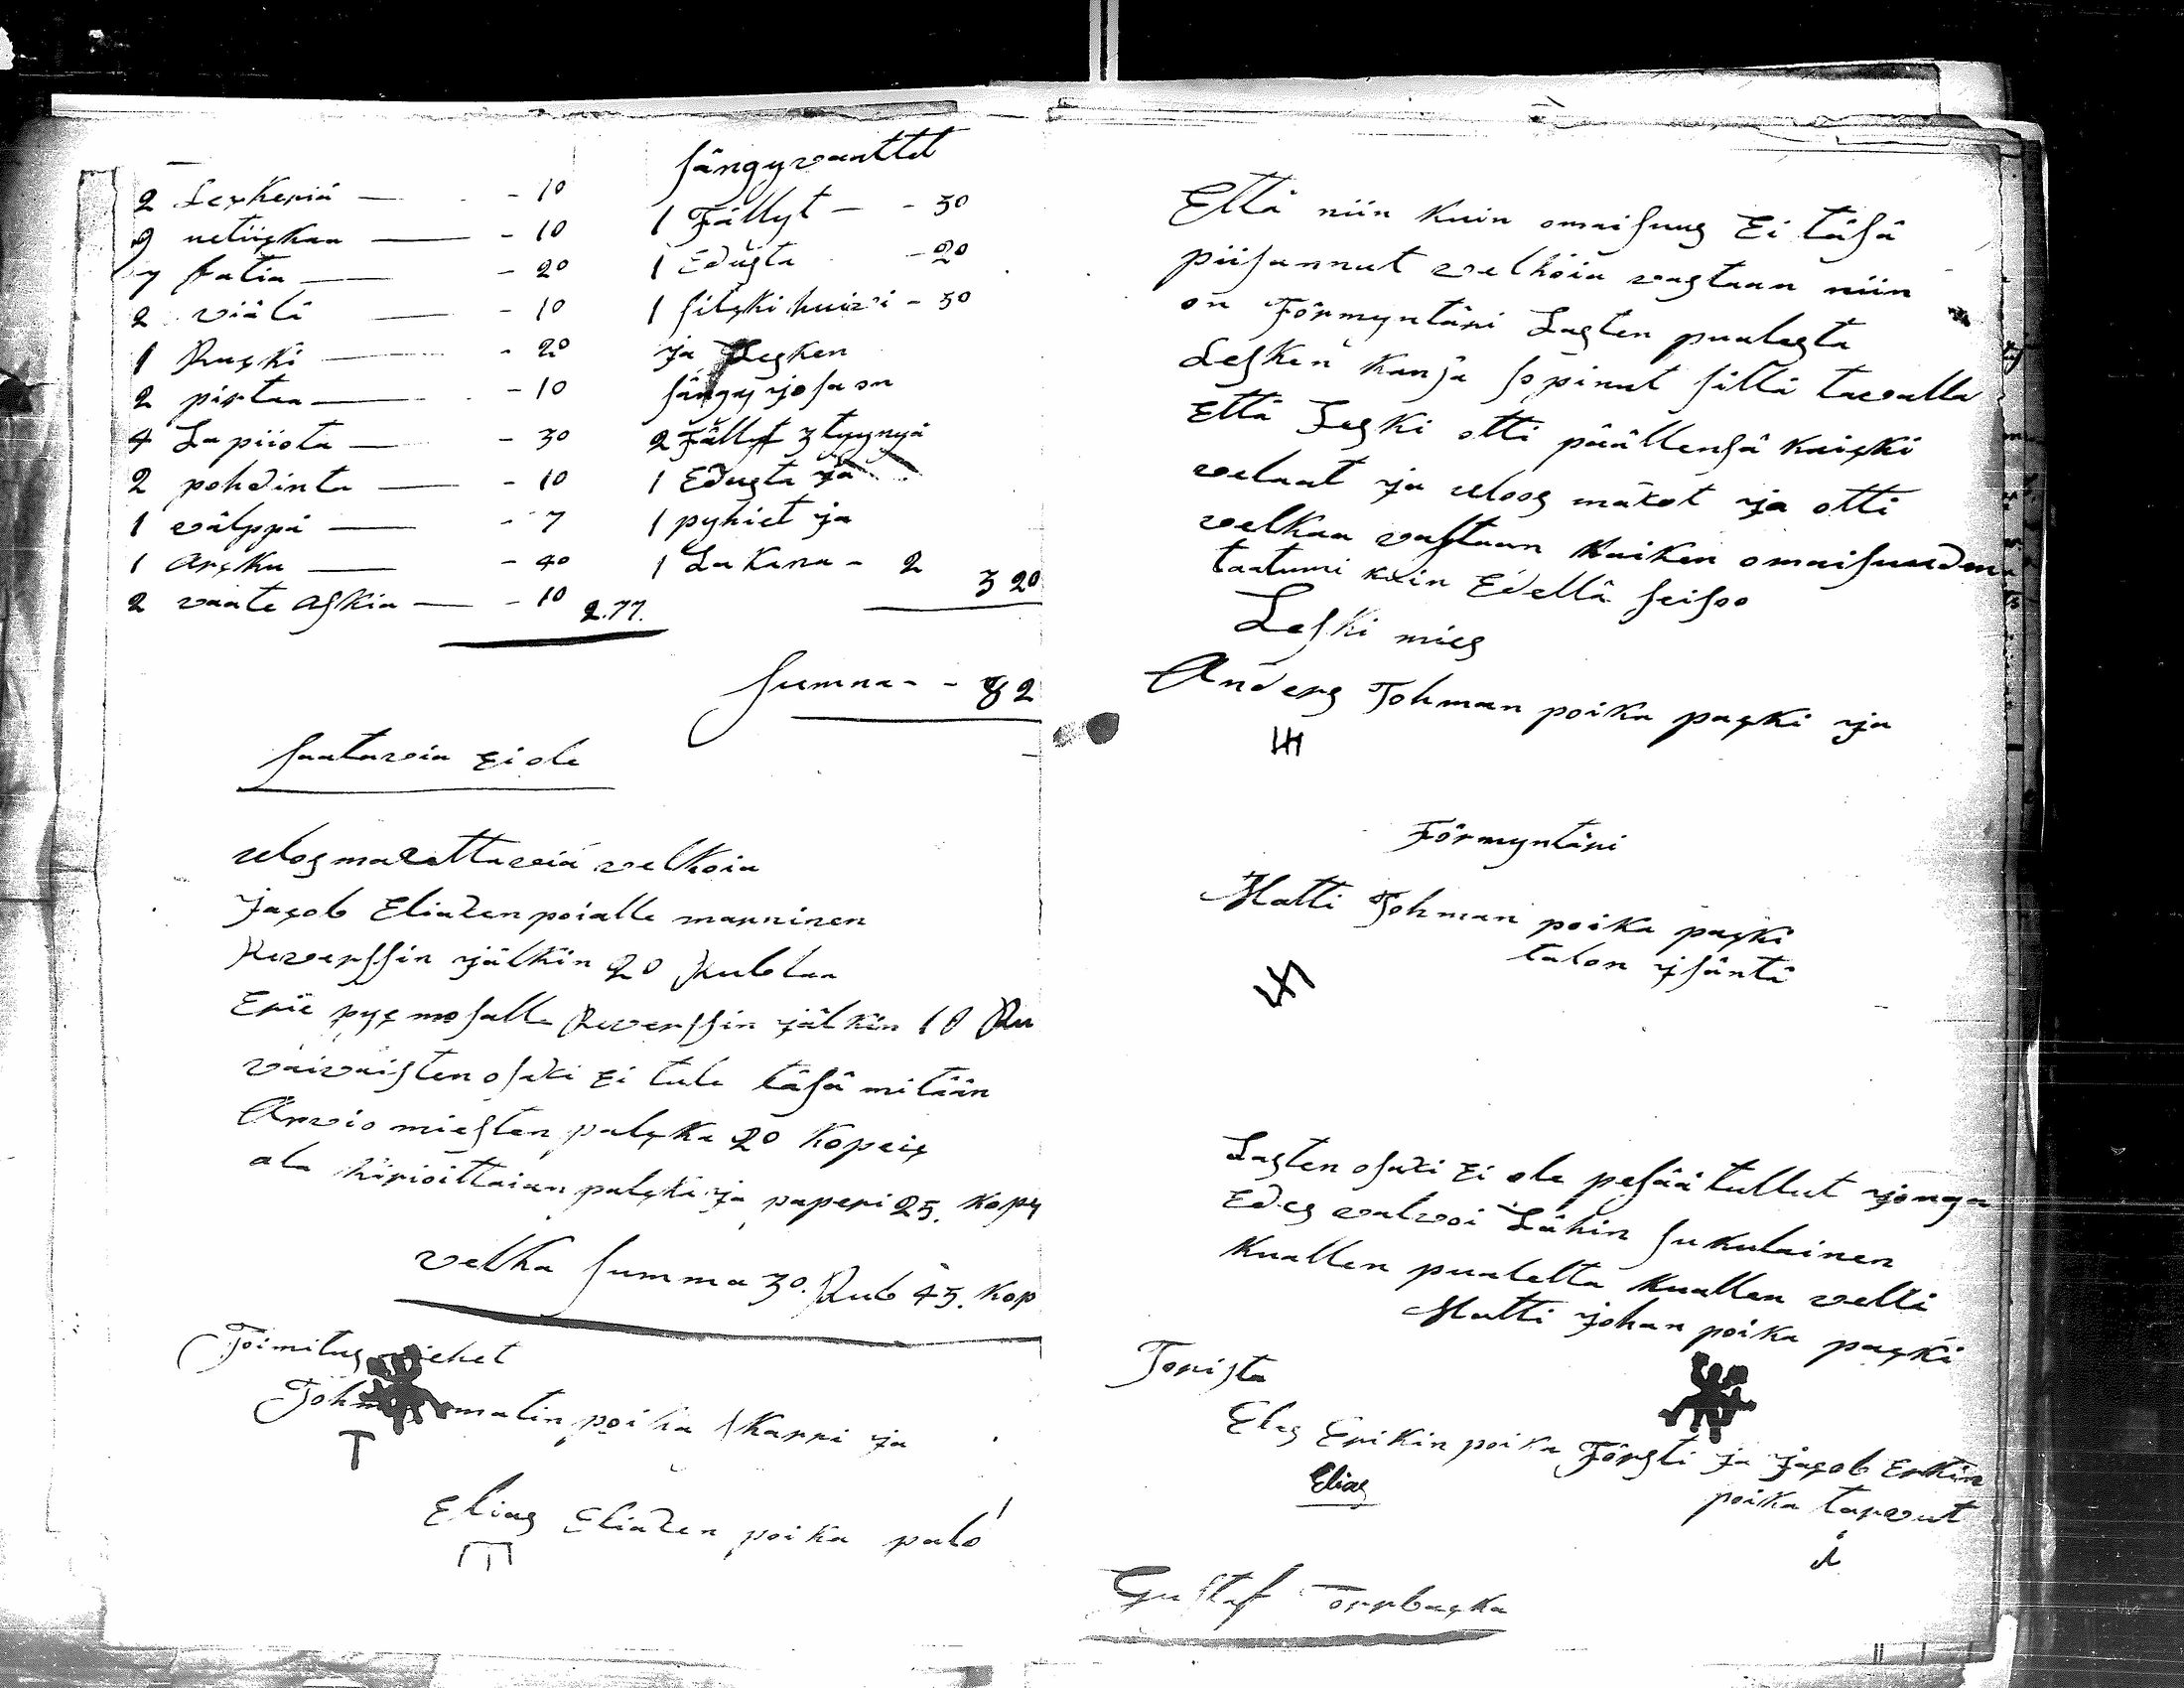 2 Lexkeriä — - 10
9 netiiskaa — - 10
7 fatia — - 20
2 viäli — - 10
1 Ruuki — - 20
2 pirtaa — - 10
4 Lapiiota — - 30
2 pohdinta — - 10
1 välppä — - 7
1 arcku — - 40
2 vaate askia — - 10
2.77.
sängyvaattet
1 Fällyt - - 50
1 Edusta - 20
1 silcki huivi - 50
ja Lesken
sängy josa on
2 Fällyt 3 tyynyä
1 Edusta ja
1 pyhiet ja
1 Lakana - 2
3 20
summa - - 82
saatavia Ei ole
ulos maxettavia velkoia
Jacob Eliaxen poialle manninen
Reverssin jälkin 20 Rublaa
Eric pyc mosalle Reverssin jälkin 10 Ru
vaivaisten osaxi Ei tule täsä mitään
Arvio miesten palcka 20 Kopeic
ala kirioittaian palcka ja paperi 25. Kopc
velka summa 30. Rub 45. Kop
Toimitus miehet
Johan matin poika Karri ja
T
Elias Eliaxen poika palo
Että niin kuin omaisuus Ei täsä
piisannut velkoia vastaan niin
on Förmyntäri Lasten puolesta
Lesken kansa sopinut sillä tavalla
Että Leski otti päällensä kaicki
velaat ja ulos mäxöt ja otti
velkaa vastaan kaiken omaisuuden
taatumi kuin Edellä seisoo
Leski mies
Anders Johman poika packi ja
Förmyntäri
Matti Johman poika packi
talon isäntä
Lasten osaxi Ei ole pesää tullut jonga
Edes valvoi Lähin sukulainen
Kuallen puolelta Kuallen velli
Matti Johan poika packi
Torista
Elias Erikin poika Försti ja Jacob Erkin
poika tarvut
Elias
Gustaf Torrbacka